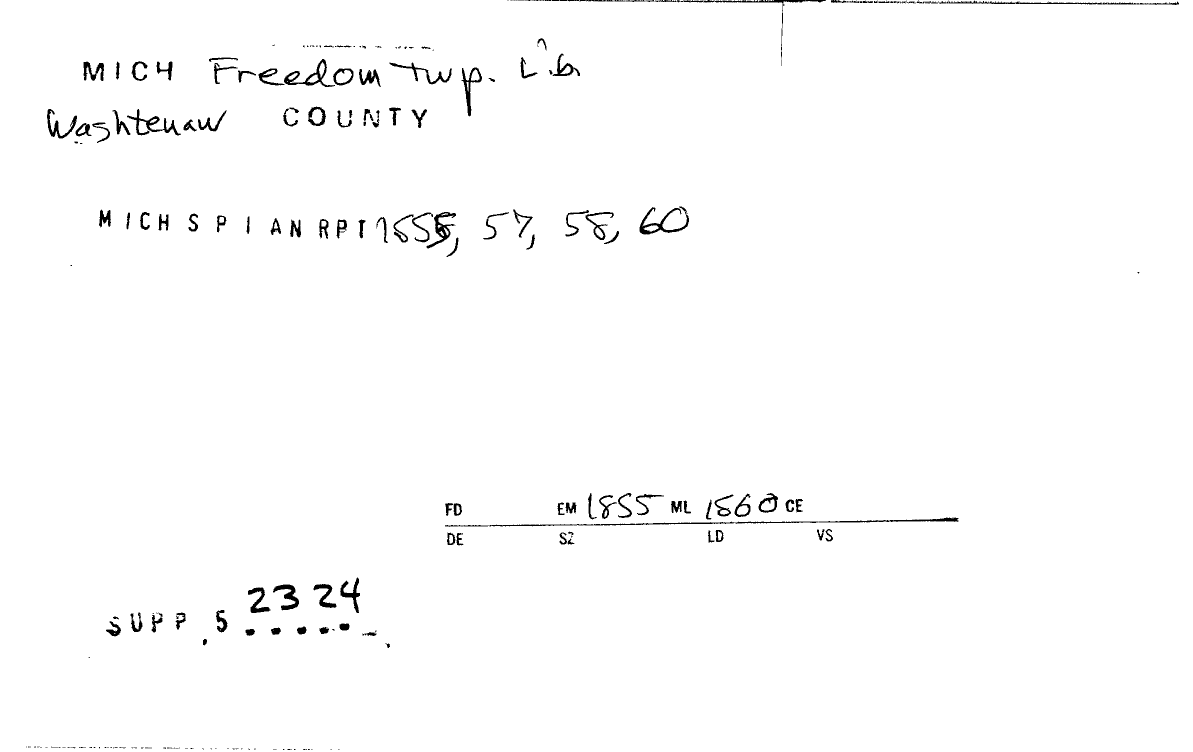 MICH Freedom Twp. Lib
Washtenaw COUNTY
MICH S P I AN RPT 1855, 57, 58, 60
FD EM 1855 ML 1860 CE
DE SZ LD VS
SUPP. 5 2324